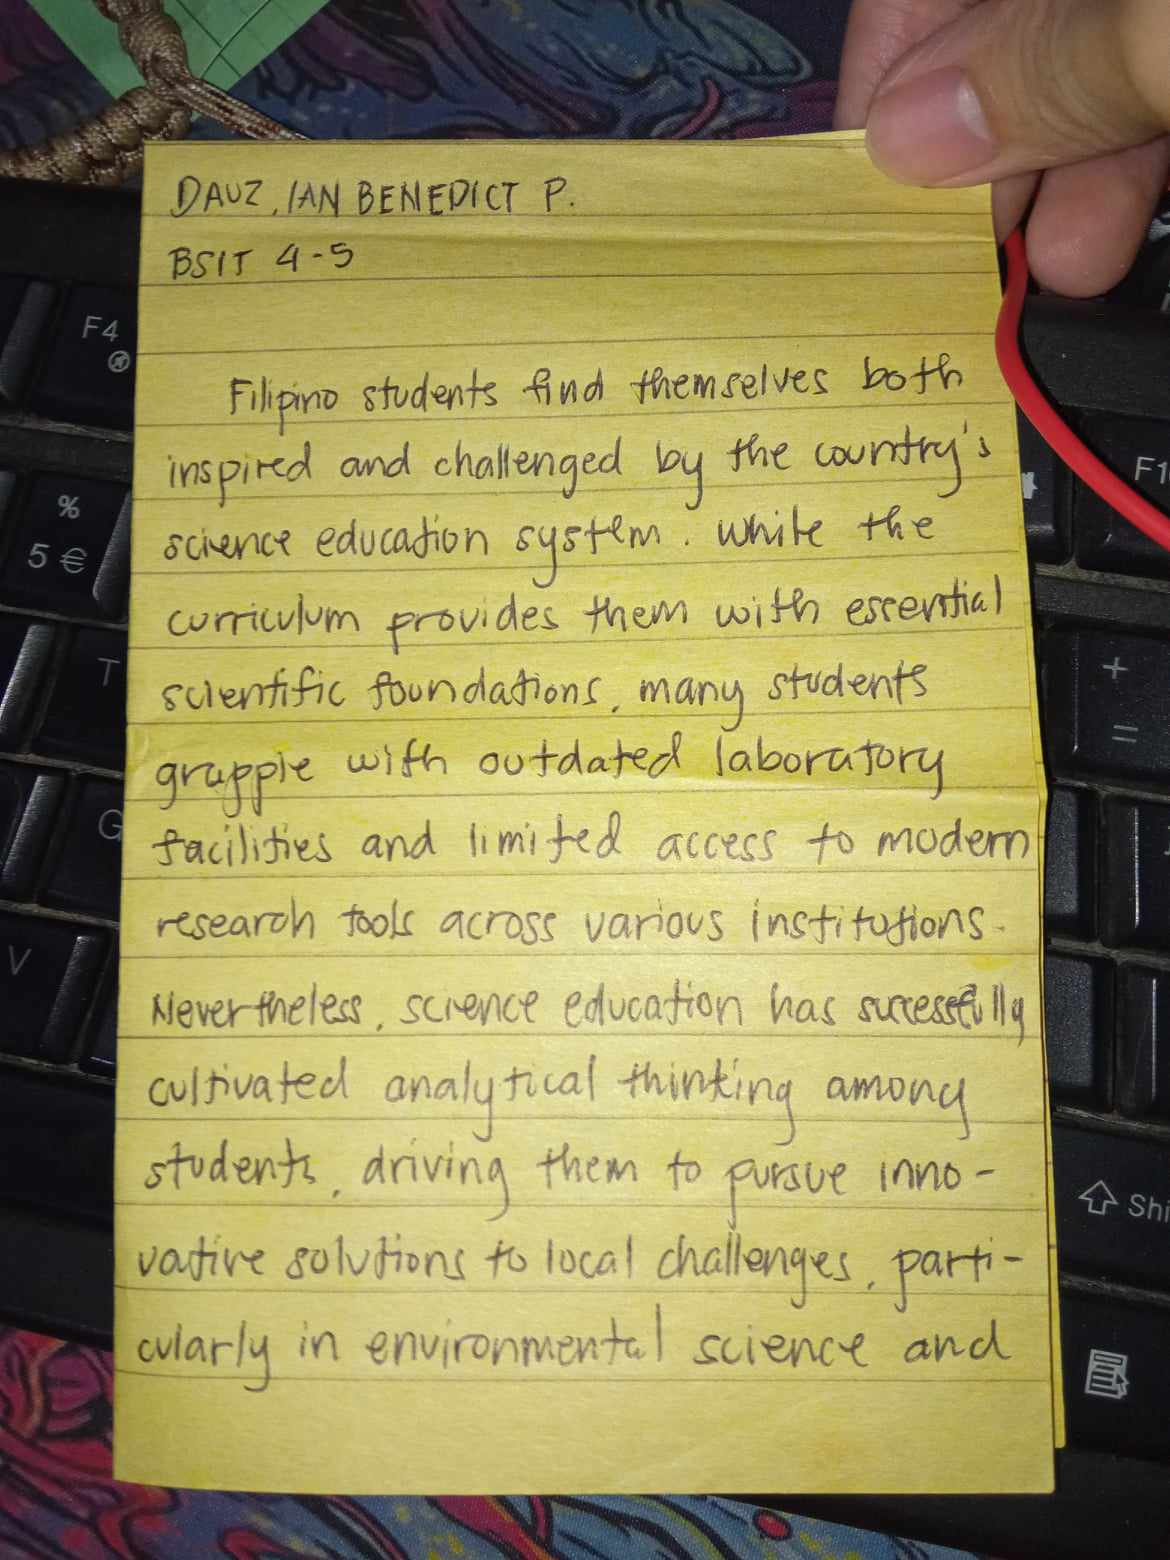 DAUZ, IAN BENEDICT P.
BSIT 4-5
Filipino students find themselves both
inspired and challenged by the country's
science education system. While the
curriculum provides them with essential
scientific foundations, many students
grapple with outdated laboratory
facilities and limited access to modern
research tools across various institutions.
Nevertheless, science education has successfully
cultivated analytical thinking among
students, driving them to pursue inno-
vative solutions to local challenges, parti-
cularly in environmental science and
F4
%
5 €
T
G
V
F1
+
=
Shi